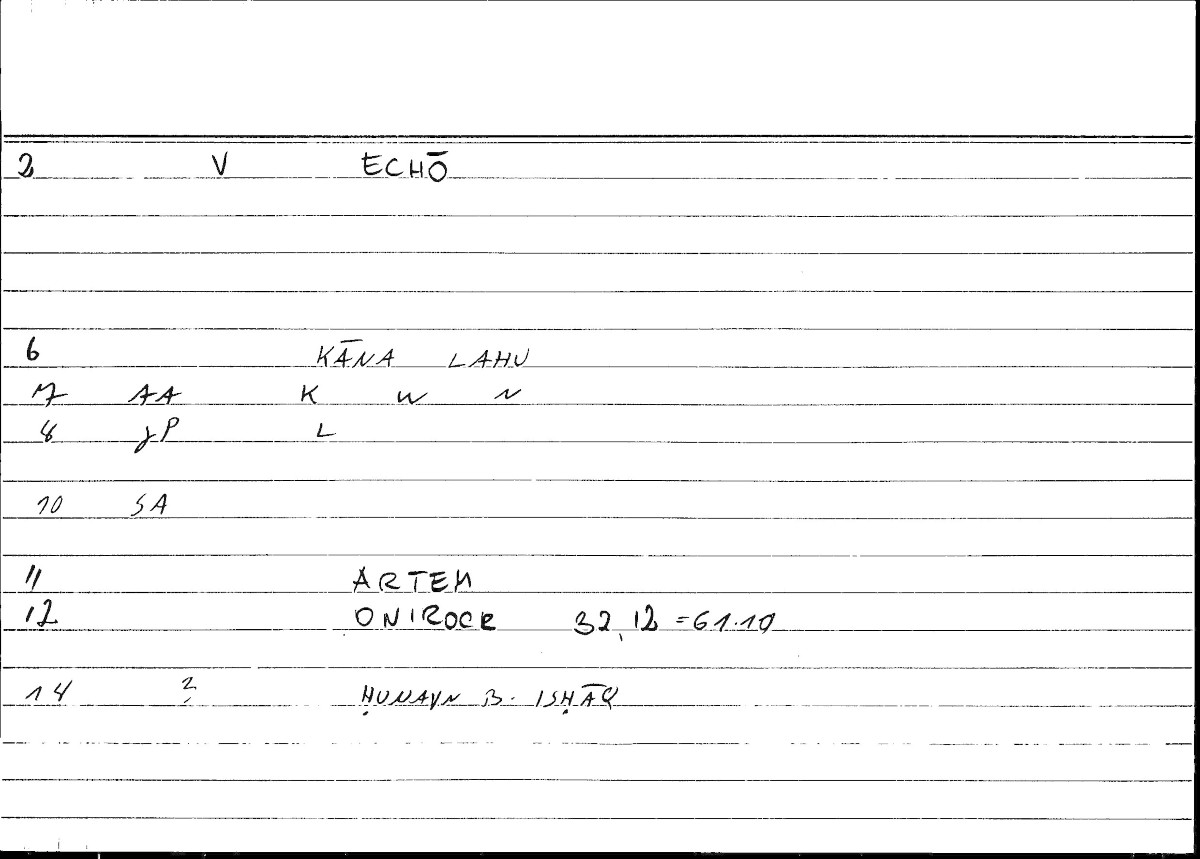 2 V ECHŌ
6 KĀNA LAHU
7 AA K W N
8 JP L
10 SA
11 ARTEM
12 ONIROCR 32,12 =61.10
14 ? ḤUNAYN B. ISḤĀQ